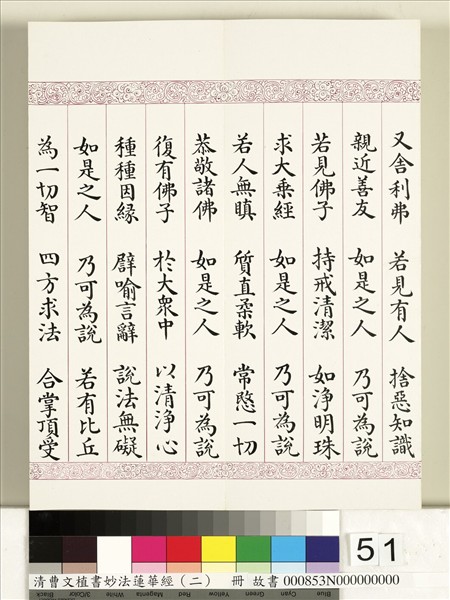 又舍利弗 若見有人 捨惡知識
親近善友 如是之人 乃可為說
若見佛子 持戒清潔 如淨明珠
求大乘經 如是之人 乃可為說
若人無瞋 質直柔軟 常愍一切
恭敬諸佛 如是之人 乃可為說
復有佛子 於大眾中 以清淨心
種種因緣 譬喻言辭 說法無礙
如是之人 乃可為說 若有比丘
為一切智 四方求法 合掌頂受
51
清曹文植書妙法蓮華經(二) 冊 故書 000853N000000000
Black 3/Color White Magenta Red Yellow Green Cyan Blue